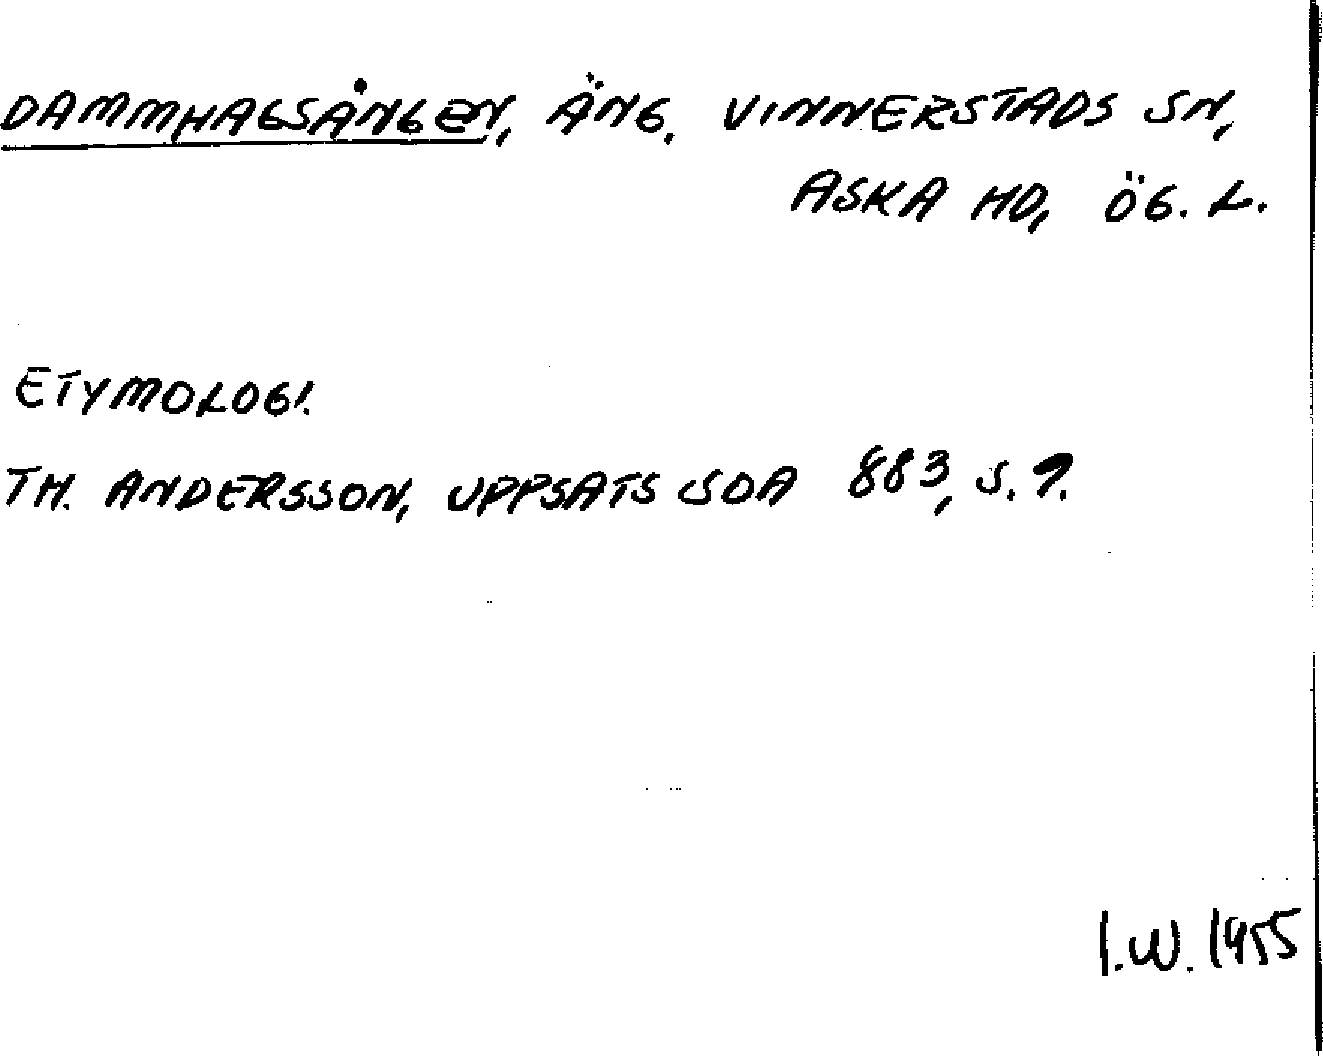 DAMMHAGSÅNGEN, ÄNG. VINNERSTADS SN,
ASKA HD, ÖG. L.
ETYMOLOGI.
TH. ANDERSSON, UPPSATS SOA 883, S. 9.
I.W. 1955